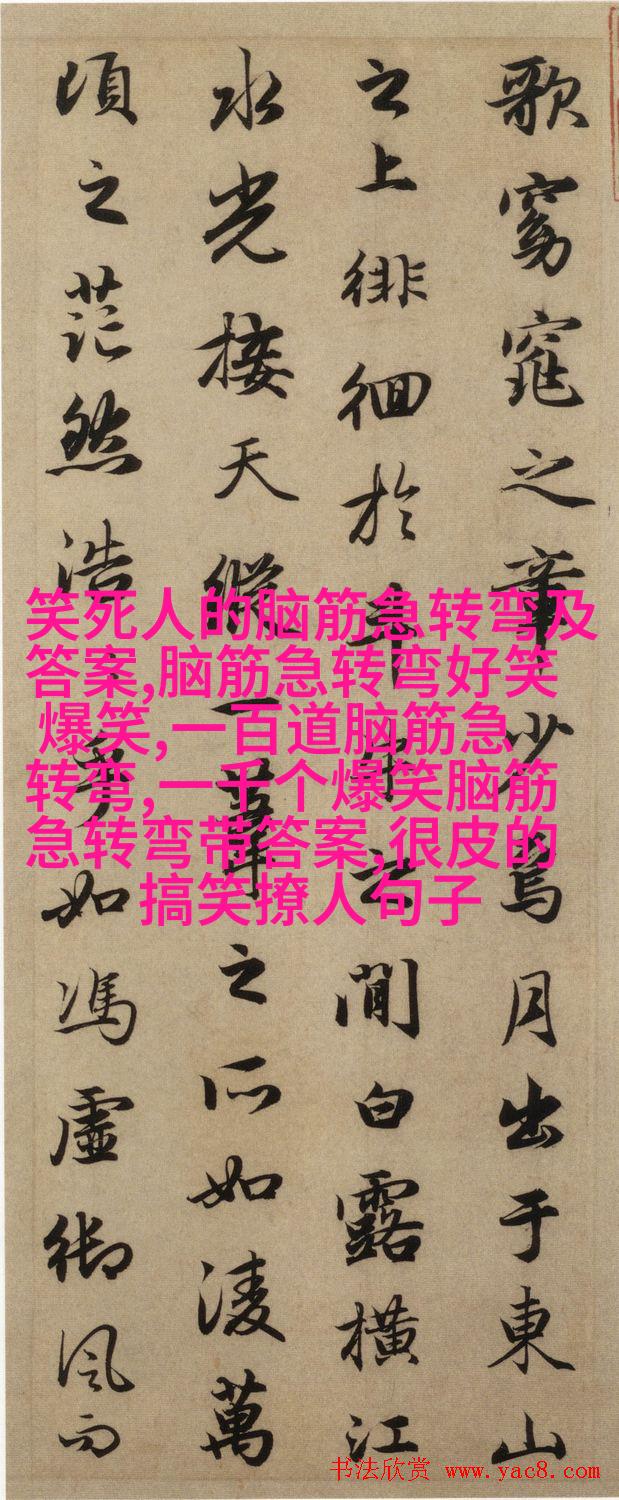 歌窈窕之章少焉月出于東山
之上徘徊於斗牛之間白露橫江
水光接天縱一葦之所如淩萬
頃之茫然浩〻乎如馮虛御風而
笑死人的脑筋急转弯及
答案,脑筋急转弯好笑
爆笑,一百道脑筋急
转弯,一千个爆笑脑筋
急转弯带答案,很皮的
搞笑撩人句子
书法欣赏 www.yac8.com